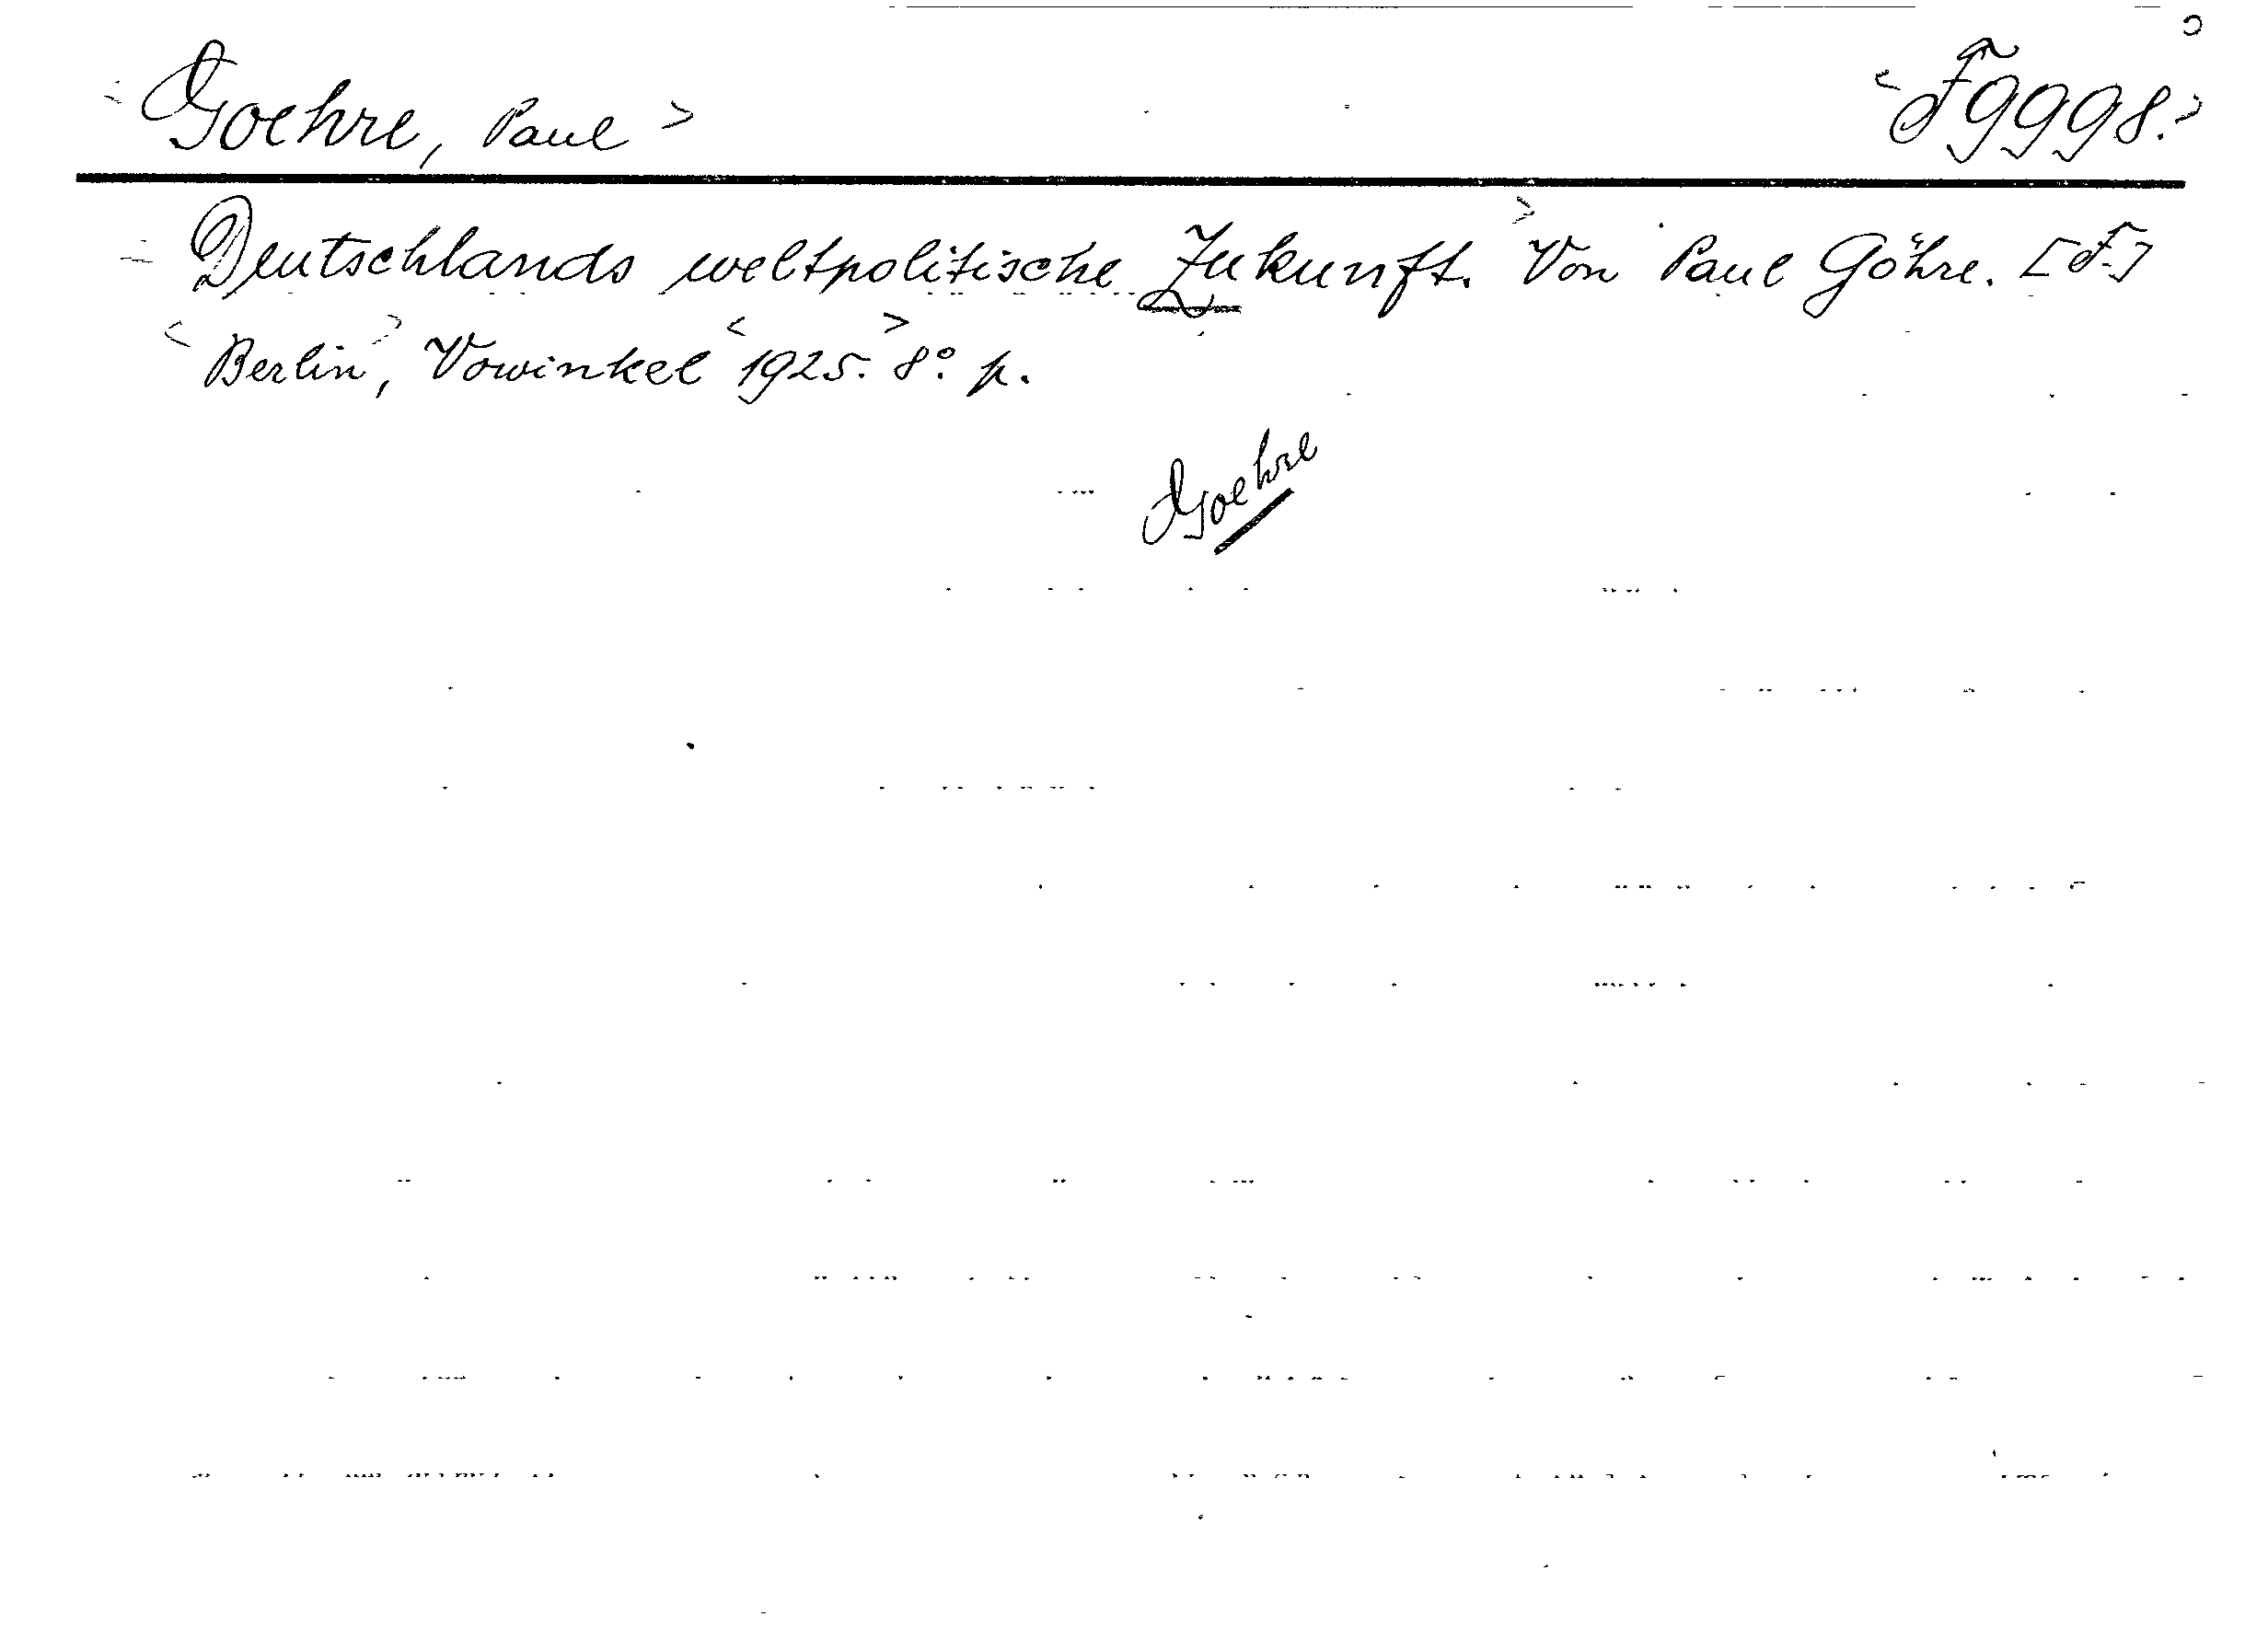 Goehre, Paul > < F 9998. >
Deutschlands weltpolitische Zukunft. > Von Paul Göhre. [F.]
< Berlin >, Vowinkel < 1925. > 8° p.
Goehre